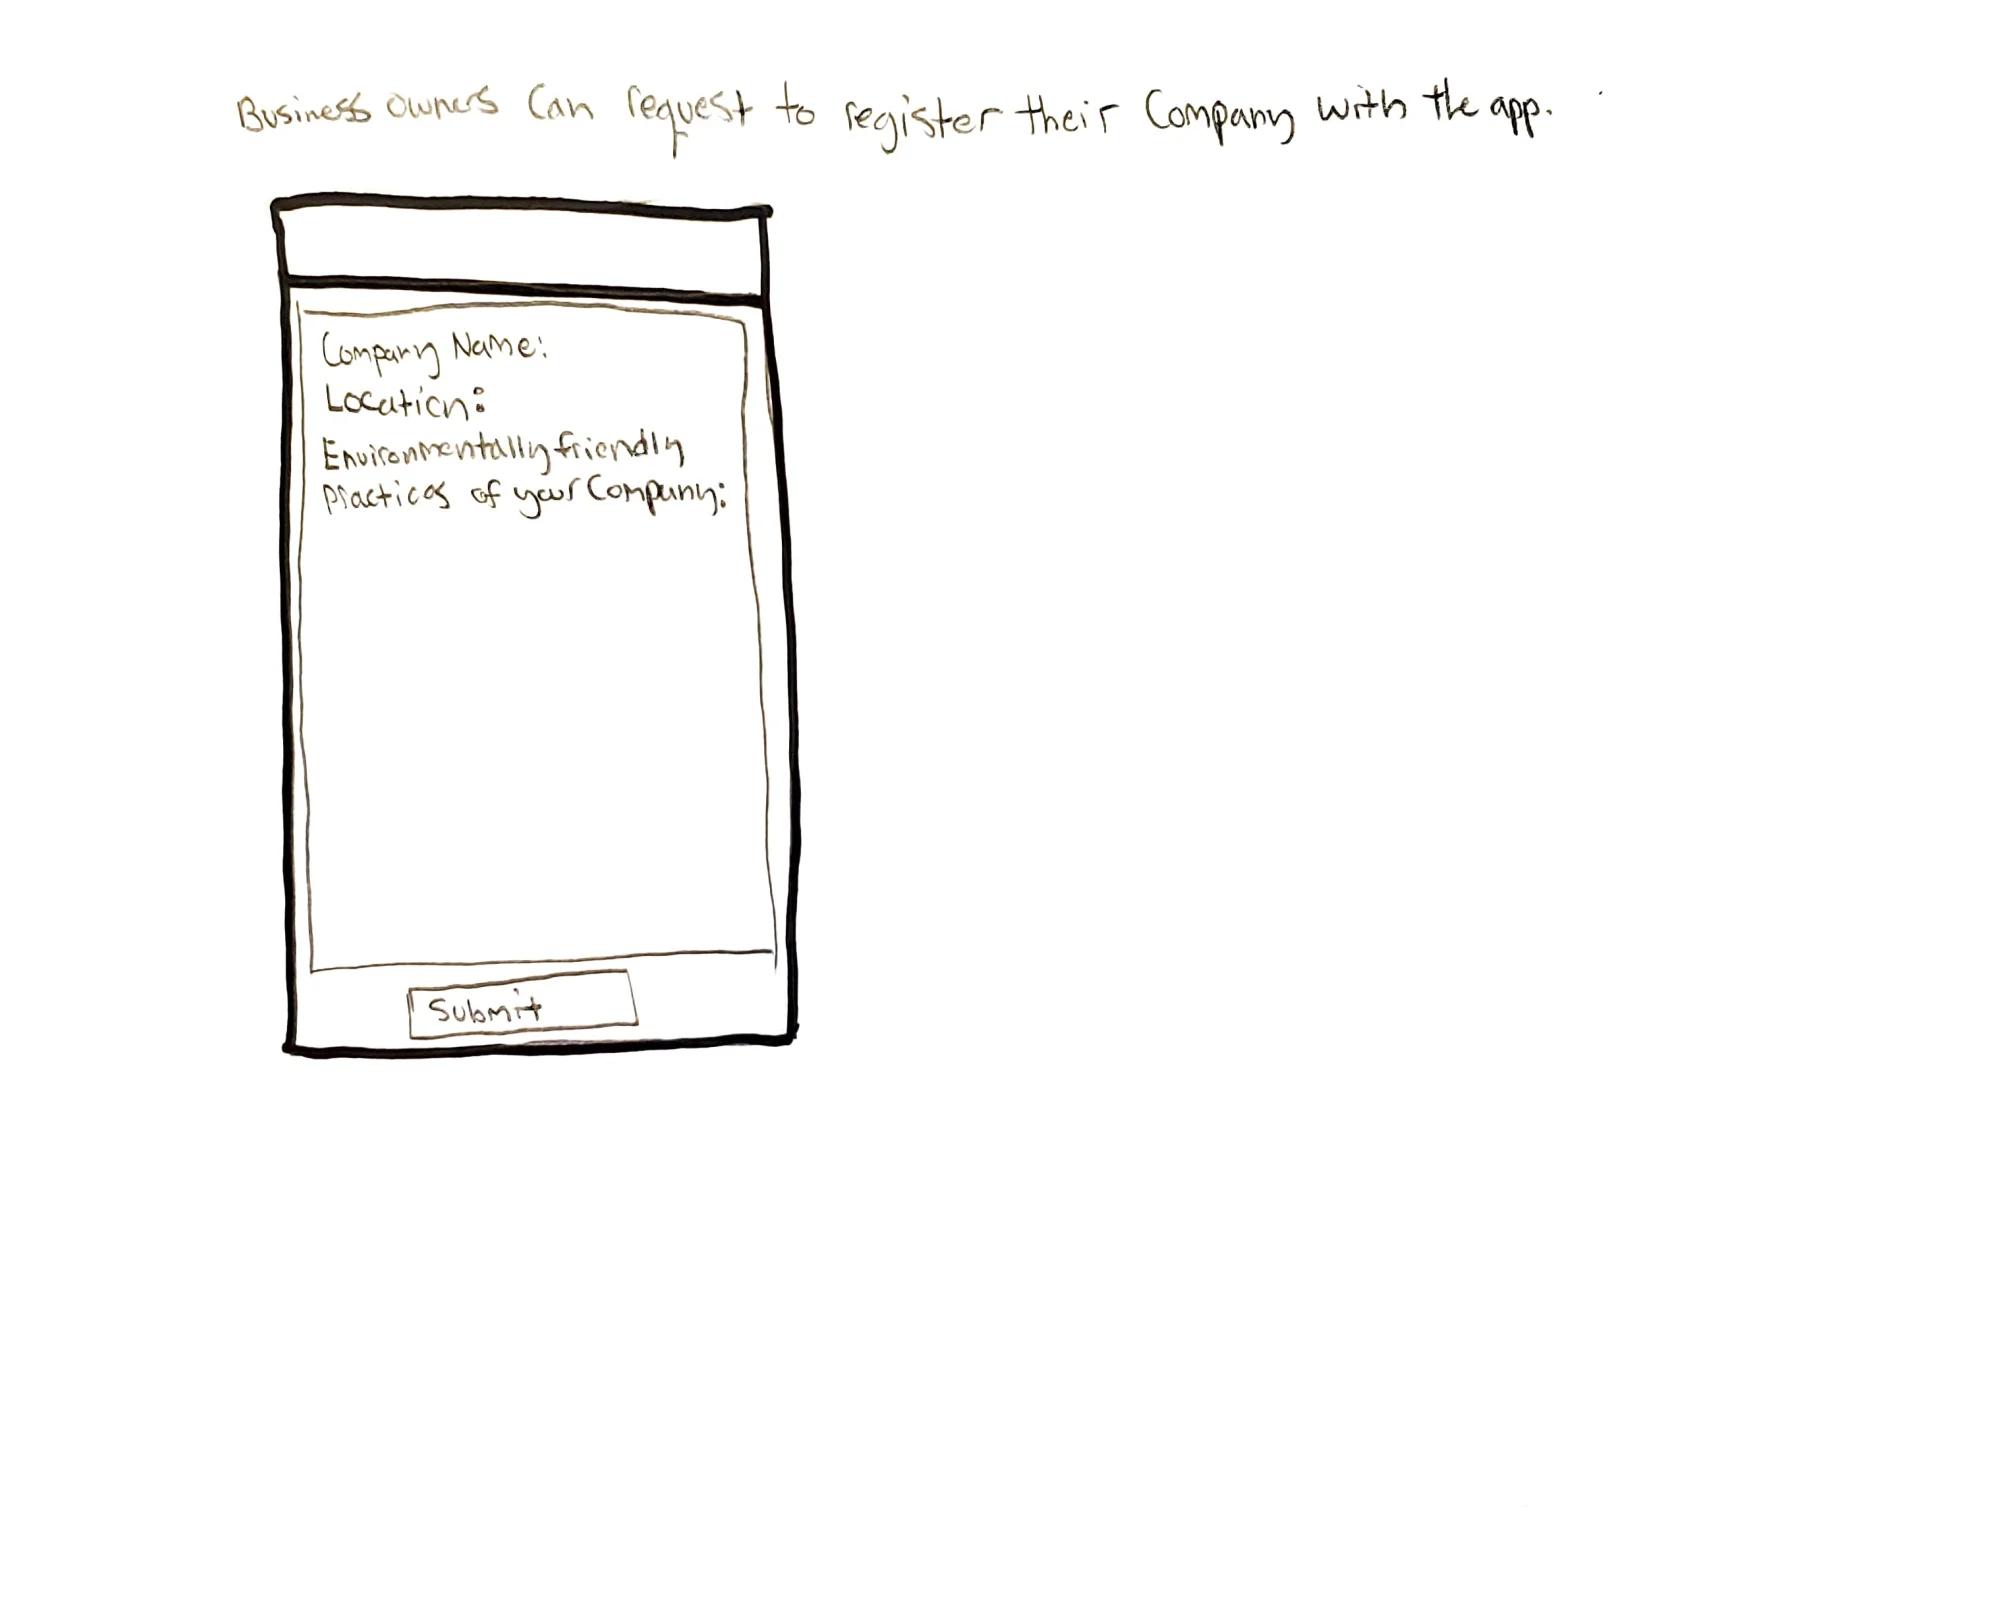 Business owners can request to register their Company with the app.
Company Name:
Location:
Environmentally friendly
practices of your Company:
Submit